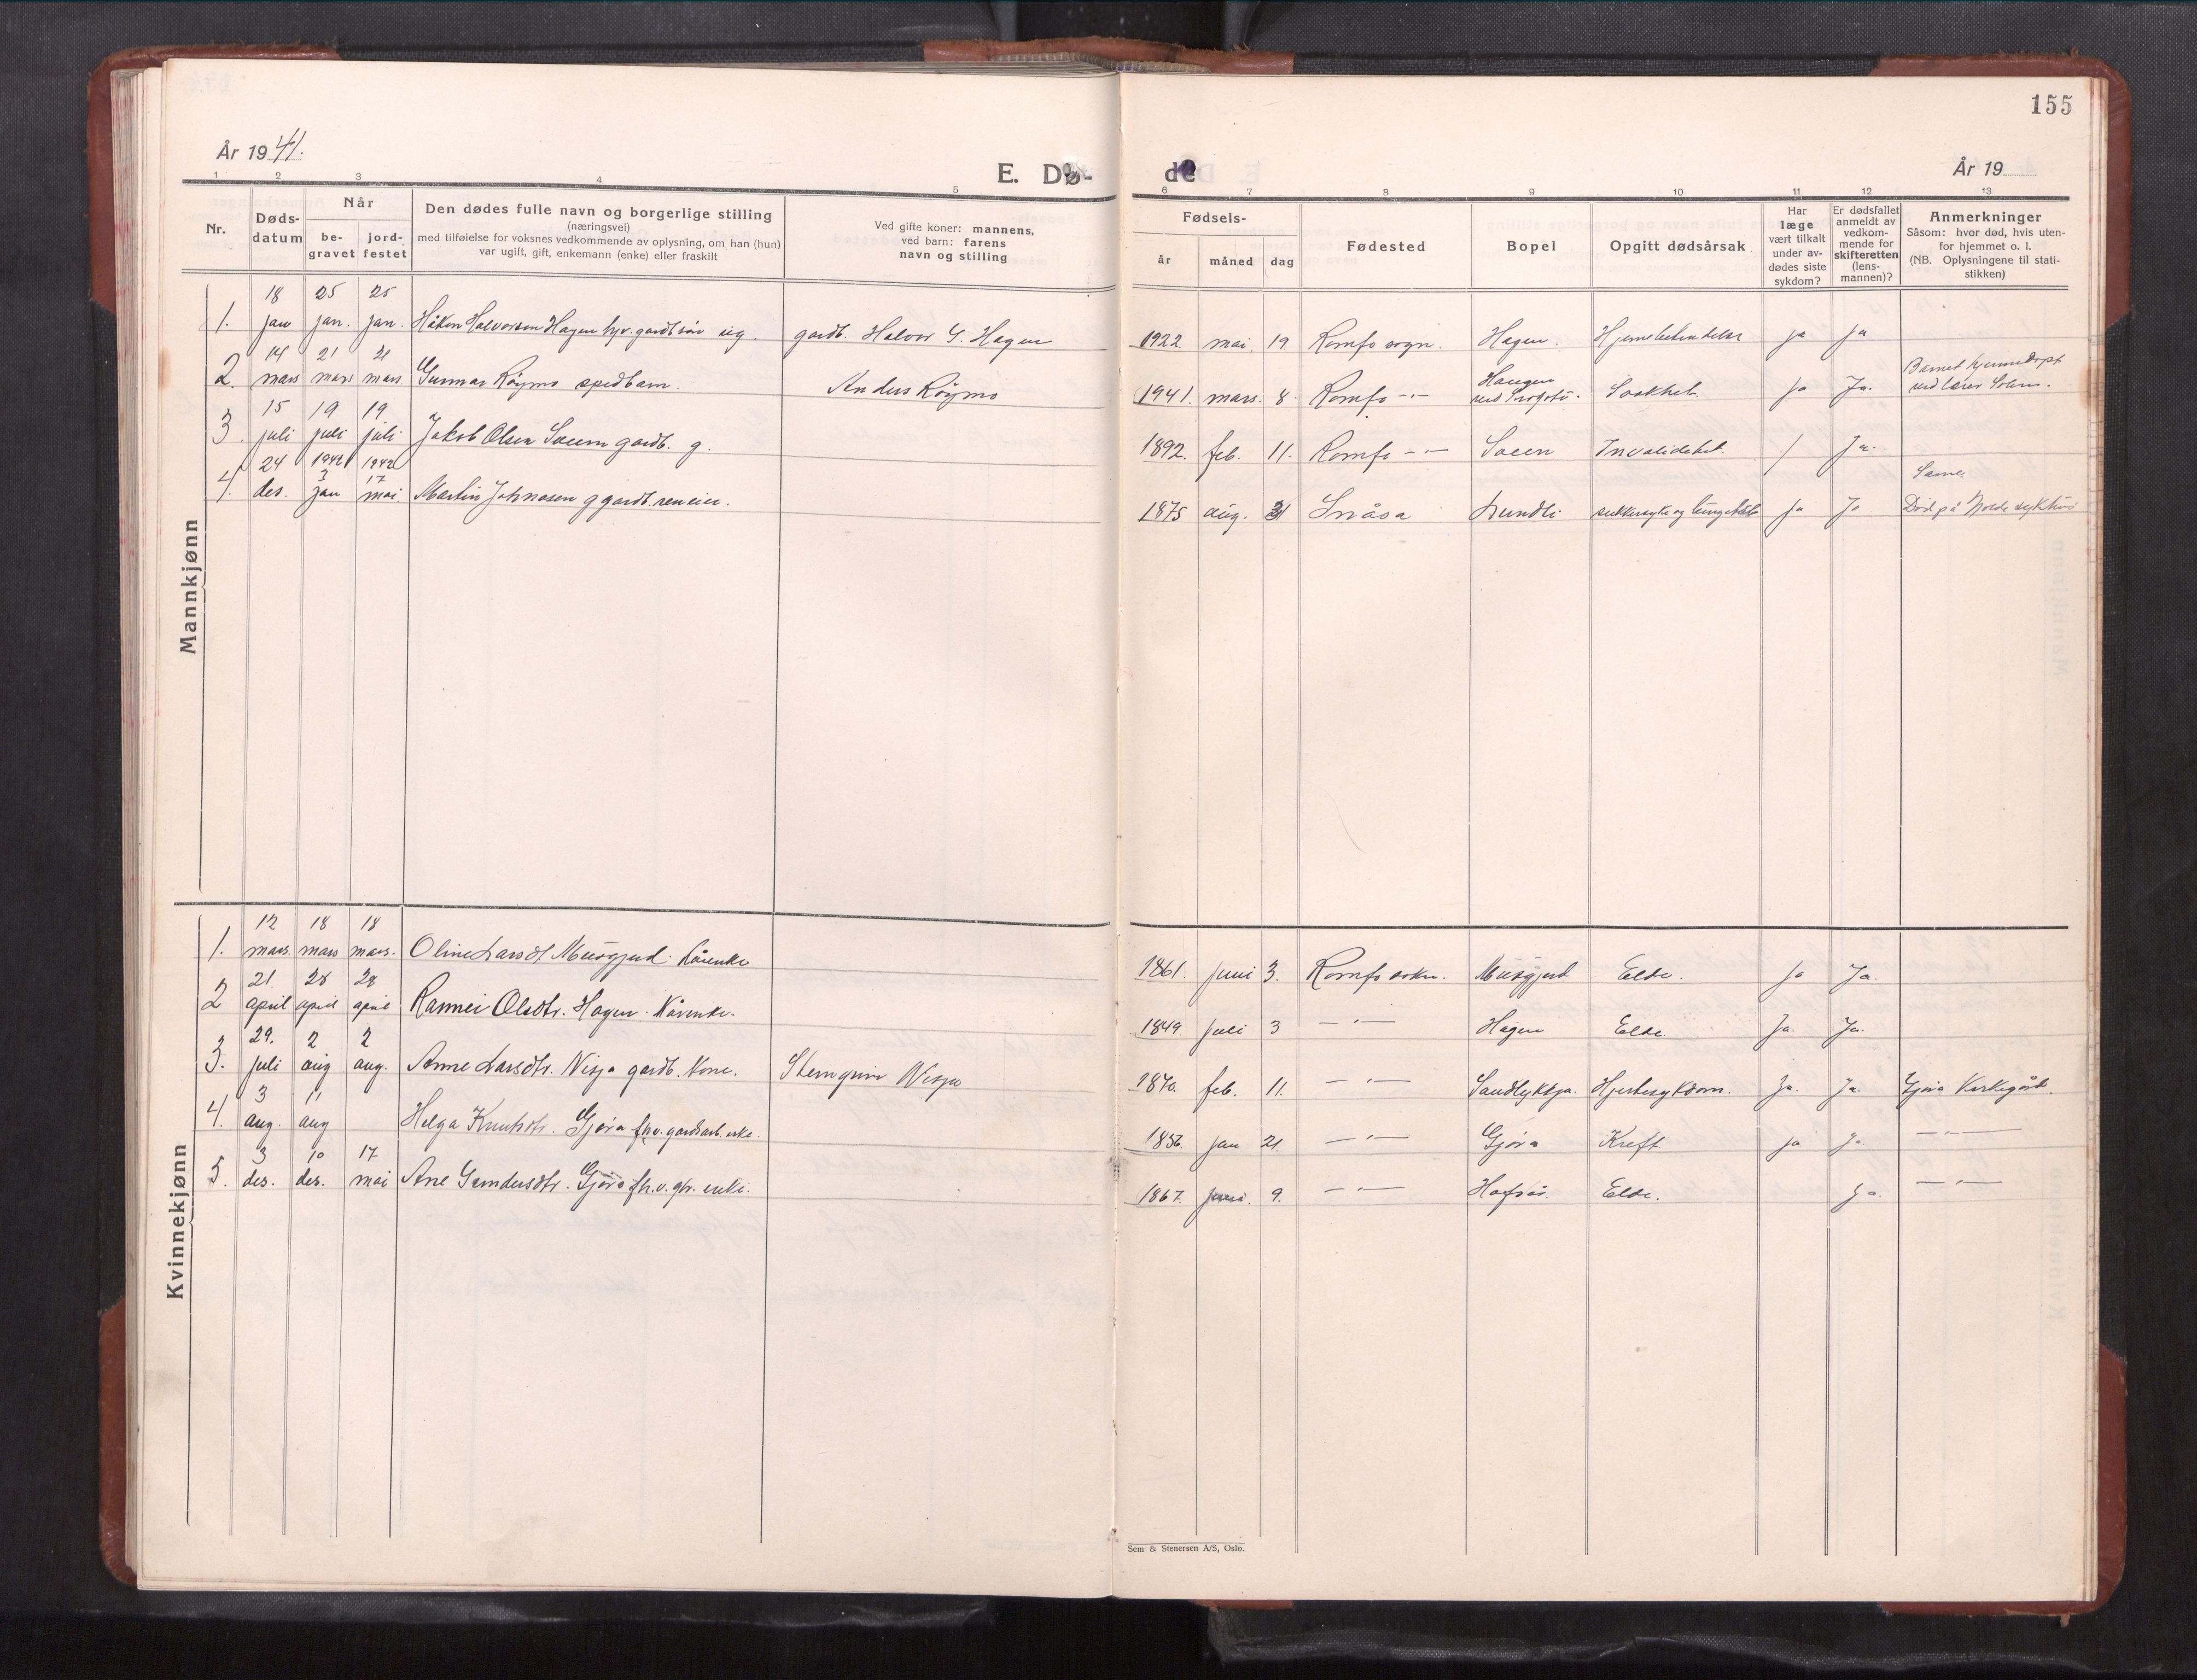 155
År 1941.
E. Dø-
de
År 19
1 2 3 4 5 6 7 8 9 10 11 12 13
Nr.
Døds-
datum
Når
be-
gravet
jord-
festet
Den dødes fulle navn og borgerlige stilling
(næringsvei)
med tilføielse for voksnes vedkommende av oplysning, om han (hun)
var ugift, gift, enkemann (enke) eller fraskilt
Ved gifte koner: mannens,
ved barn: farens
navn og stilling
Fødsels-
år måned dag
Fødested
Bopel
Opgitt dødsårsak
Har
læge
vært tilkalt
under av-
dødes siste
sykdom?
Er dødsfallet
anmeldt av
vedkom-
mende for
skifteretten
(lens-
mannen)?
Anmerkninger
Såsom: hvor død, hvis uten-
for hjemmet o. l.
(NB. Oplysningene til stati-
stikken)
Mannkjønn
18 25 25
1. jan jan. jan. Håkon Halvorsen Hagen hjv. gardbr.søn ug. gardb. Halvor G. Hagen 1922. mai. 19 Romfo sogn. Hagen. Hjernebetendelse ja ja
14 21 21
2. mars mars mars Gunnar Röymo spedbarn. Anders Röymo 1941. mars. 8. Romfo -"- Haugen Svakhet ja Ja. Barnet hjemmedøpt
ved lærer Solem.
15 19 19
3. juli juli juli Jakob Olsen Sæem gardb. g. 1892. feb. 11. Romfo -"- Sæem Invaliditet. / Ja.
24 1942 1942
3 17
4. des. jan mai. Martin Johnasen g gardb. reneier. 1875 aug. 31 Snåsa Lundli sukkersyke og ja Ja Same
Död på Molde sykhus
Kvinnekjønn
12 18 18
1. mars. mars mars. Oline Larsdt Musgjerd. Kårenke 1861. juni 3. Romfo sokn. Musgjerd Elde. ja Ja.
21. 28 28
2 april april april Rannei Olsdtr. Hagen. Kårenke. 1849. juli 3 -"- Hagen Elde. Ja. Ja.
29. 2 2
3. juli aug aug. Anne Larsdtr. Visja gardb. kone. Steingrim Visja 1870. feb. 11. -"- Sandlykkja. Hjertesykdom. Ja. Ja. Gjøra Kirkegård.
3 11
4. aug. aug Helga Knutsdtr. Gjøra fhv. gardsarb. enke. 1856. jan 21. -"- Gjøra Kreft ja Ja. -"-
3 10 17
5. des. des. mai Ane Gundersdtr. Gjøra fh.v. gbr. enke. 1867. juni. 9. -"- Hafsås. Elde. Ja. -"-
Sem & Stenersen A/S, Oslo.